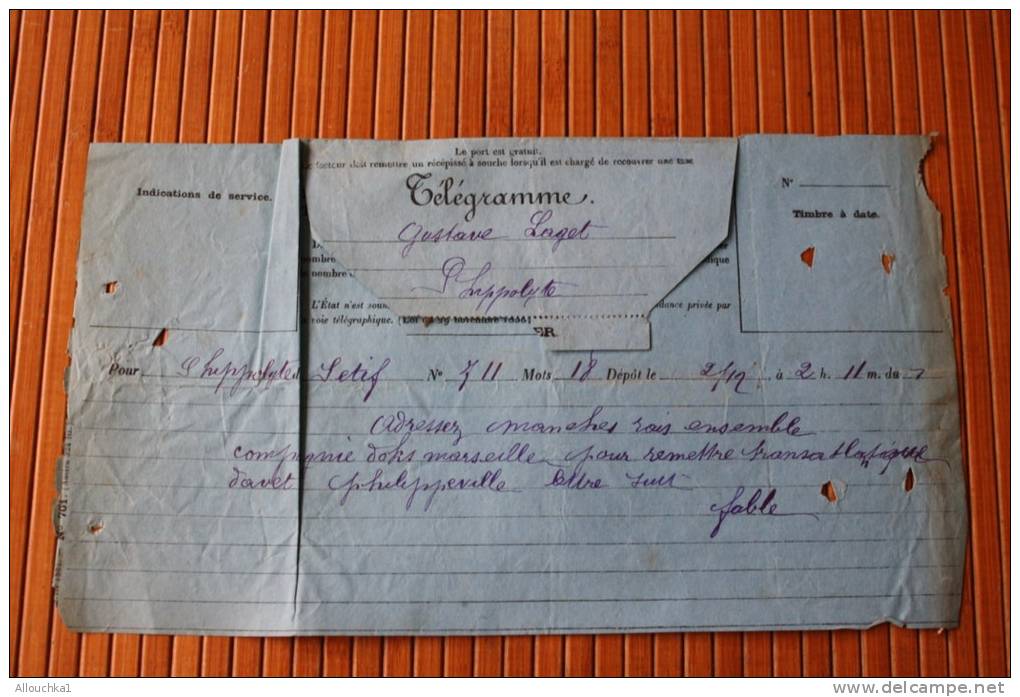 Le port est gratuit.
facteur doit remettre un récépissé à souche lorsqu'il est chargé de recouvrer une taxe
Indications de service.
Télégramme.
N°
Timbre à date.
Gustave Laget
St hippolyte
L'État n'est soum
dance privée par
voie télégraphique.
ER.
Pour St hippolyte d Setif N° 711 Mots 18 Dépôt le 2/12 à 2 h. 11 m. du
adressez manches rais ensemble
compagnie doks marseille pour remettre transatlantique
davet philippeville lettre suit
fable
N° 701.
Allouchka1
delcampe.net